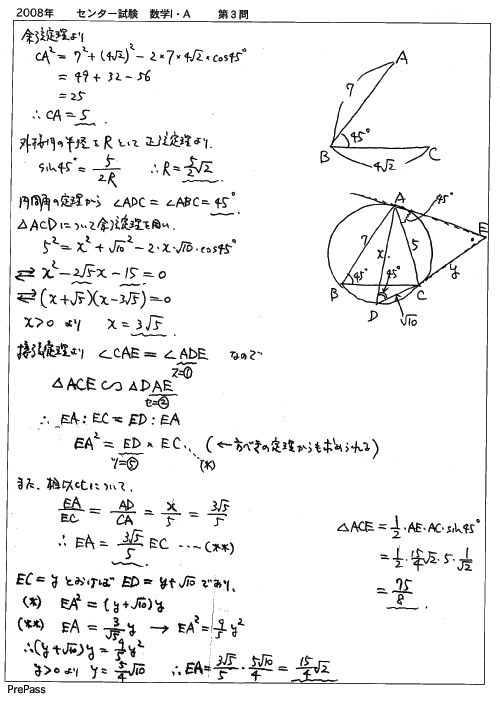 2008年 センター試験 数学I・A 第3問
余弦定理より
CA² = 7² + (4√2)² − 2×7×4√2×cos45°
= 49 + 32 − 56
= 25
∴ CA = 5
外接円の半径をRとして正弦定理より、
sin45° = 5/2R ∴ R = 5/2√2
円周角の定理から ∠ADC = ∠ABC = 45°
△ACDについて余弦定理を用い、
5² = x² + √10² − 2・x・√10・cos45°
⇄ x² − 2√5x − 15 = 0
⇄ (x + √5)(x − 3√5) = 0
x > 0 より x = 3√5
接弦定理より ∠CAE = ∠ADE なので
ス=①
△ACE ∽ △DAE
セ=②
∴ EA : EC = ED : EA
EA² = ED × EC … (*) (←方べきの定理からも求められる)
ソ=⑤
また、相似比について、
EA/EC = AD/CA = x/5 = 3√5/5
∴ EA = 3√5/5 EC … (**)
EC = y とおけば ED = y + √10 であり、
(*) EA² = (y + √10)y
(**) EA = 3/√5 y → EA² = 9/5 y²
∴ (y + √10)y = 9/5 y²
y > 0 より y = 5/4 √10 ∴ EA = 3√5/5 ・ 5√10/4 = 15/4 √2
A
7
45°
B
4√2
C
A
45°
E
7
x
5
y
B
45°
45°
C
D
√10
△ACE = 1/2・AE・AC・sin45°
= 1/2・15/4√2・5・1/√2
= 75/8
PrePass